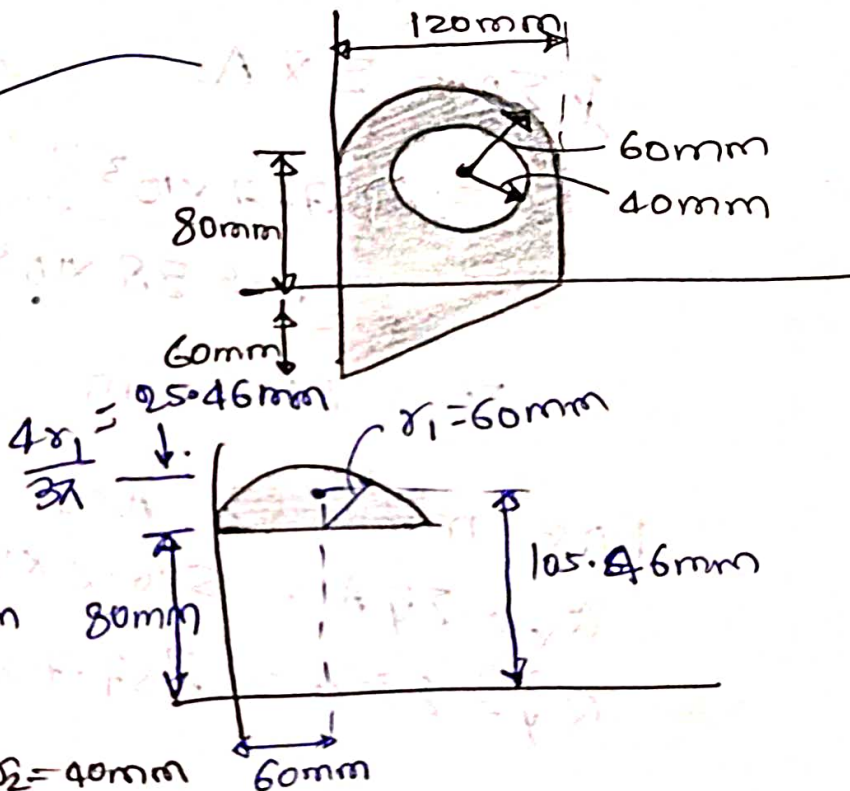 120mm
60mm
40mm
80mm
60mm
4r₁/3π = 25.46mm
r₁=60mm
105.46mm
80mm
r₂=40mm
60mm